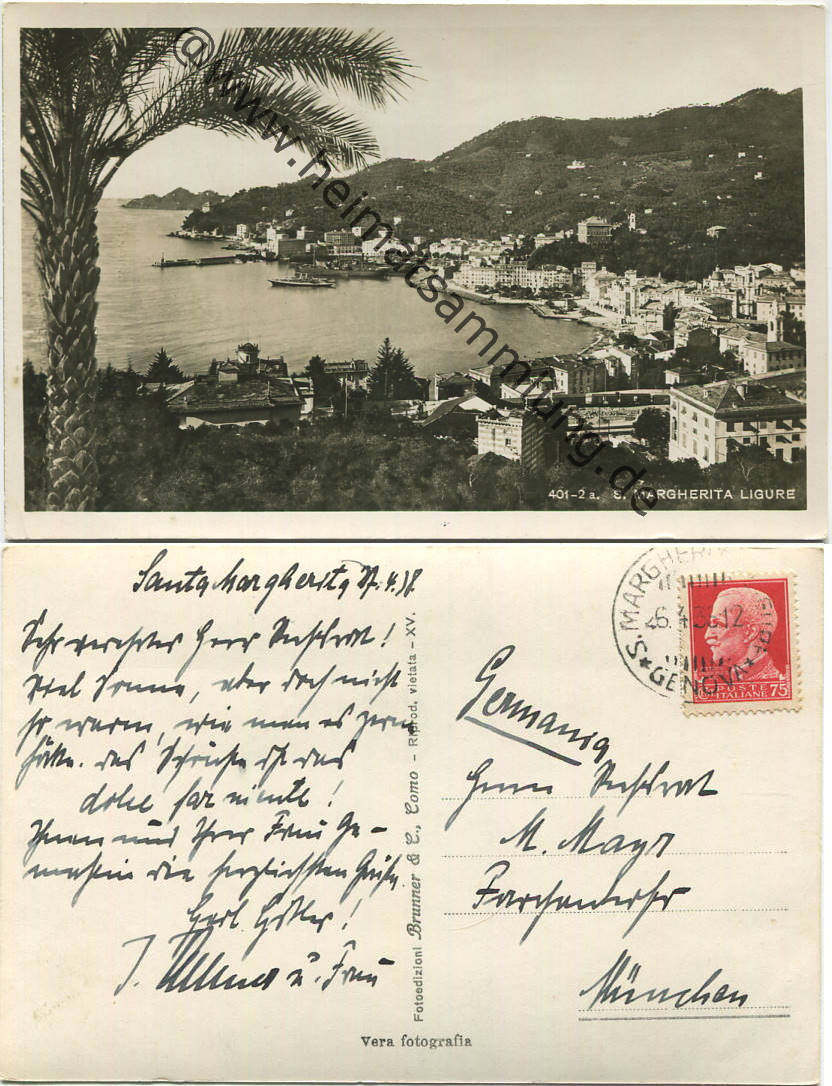 @www.heimatsammlung.de
401-2 a. S. MARGHERITA LIGURE
Santa Margherita 27.4.38
Sehr verehrter Herr
Viel Sonne, aber doch nicht
so warm, wie man es gerne
hätte. das Schönste ist das
dolce far niente!
Ihnen und Ihrer Frau Ge-
mahlin die herzlichsten Grüße
Heil Hitler!
u. Frau
Fotoedizioni Brunner & C., Como - Riprod. vietata - XV.
Vera fotografia
S. MARGHERITA LIGURE
GENOVA
POSTE ITALIANE 75
Germania
Herrn
M. Mayr
München